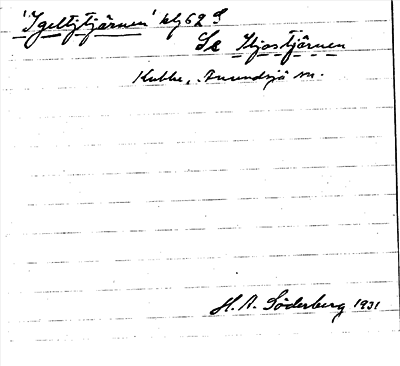 'Igeltjtjärnen' blj 62 S
Se Iljostjärnen
Kubbe, Anundsjö sn.
H. A. Söderberg 1931